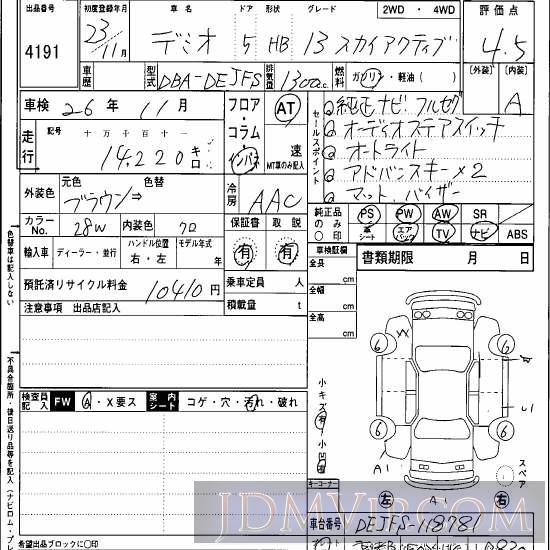 出品番号 初度登録年月 車名 ドア 形状 グレード 2WD ・ 4WD 評価点
4191 23/11月 デミオ 5 HB 13スカイアクティブ 4.5
車歴 型式 DBA-DEJFS 排気量 1300c.c. 燃料 ガソリン・軽油( ) [外装] [内装]
A
車検 26年 11月 フロア・コラム・インパネ AT 速 MT車のみ記入
走行 記号 十万千百十一
14,220 キロ
セールスポイント
純正ナビ フルセグ
オーディオステアスイッチ
オートライト
アドバンスキー×2
マット、バイザー
外装色 元色 ブラウン⇒ 色替 冷房 AAC
カラーNo. 28W 内装色 クロ 保証書 取説
純正品のみ〇印 PS PW AW SR
革シート エアバック TV ナビ ABS
輸入車 ディーラー・並行 ハンドル位置 右・左 モデル年式 年 有 有
車検証欄 書類期限 月 日
全長 cm
全幅 cm
全高 cm
預託済リサイクル料金 10410円 乗車定員 人
注意事項 出品店記入 積載量 t
色替車は記入しない
不具合箇所・後日送り品等を記入(ナビロム・プレ
検査員記入 FW A・X要ス 室内シート コゲ・穴・汚れ・破れ
小キズ有 小凹
W
6 6
6 6
A1
A1
スペア
左 右
キーコーナー
車台番号 DEJFS-118781
希望出品ブロックに〇印
JDMVIP.COM